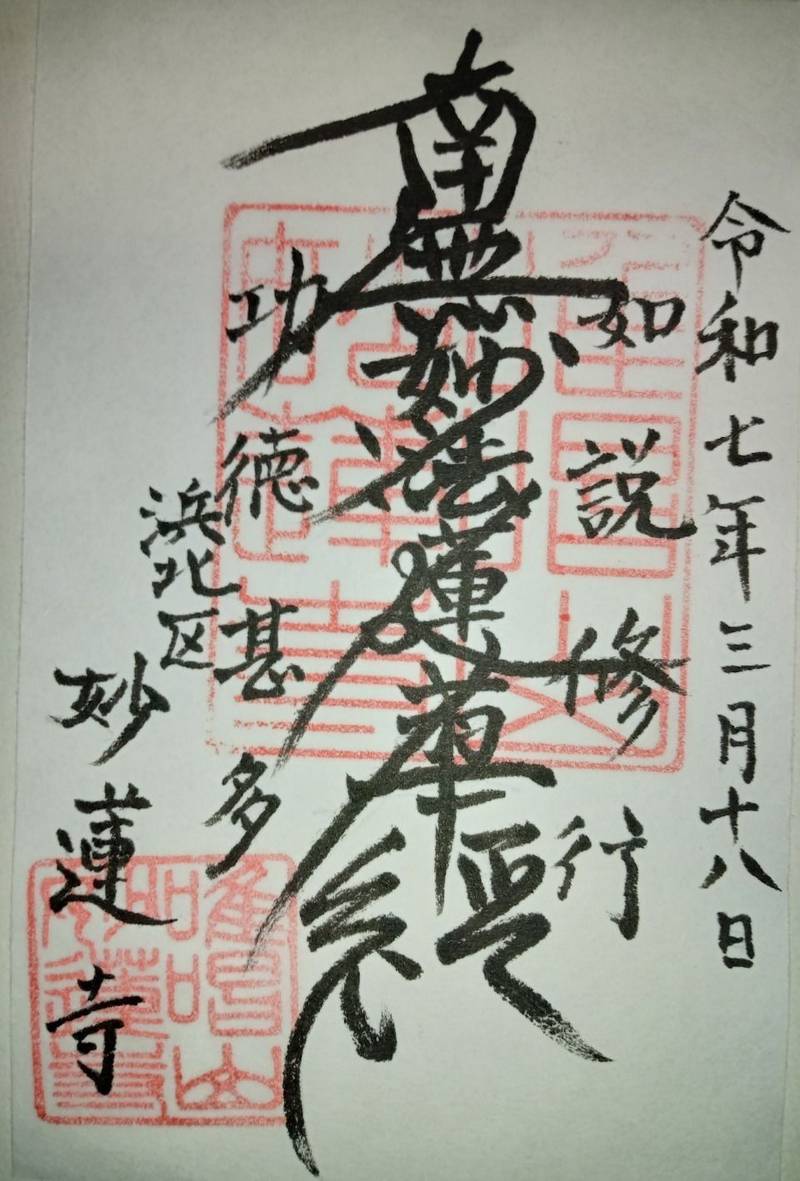 令和七年三月十八日
如説修行
南無妙法蓮華経
功徳甚多
浜北区
妙蓮寺